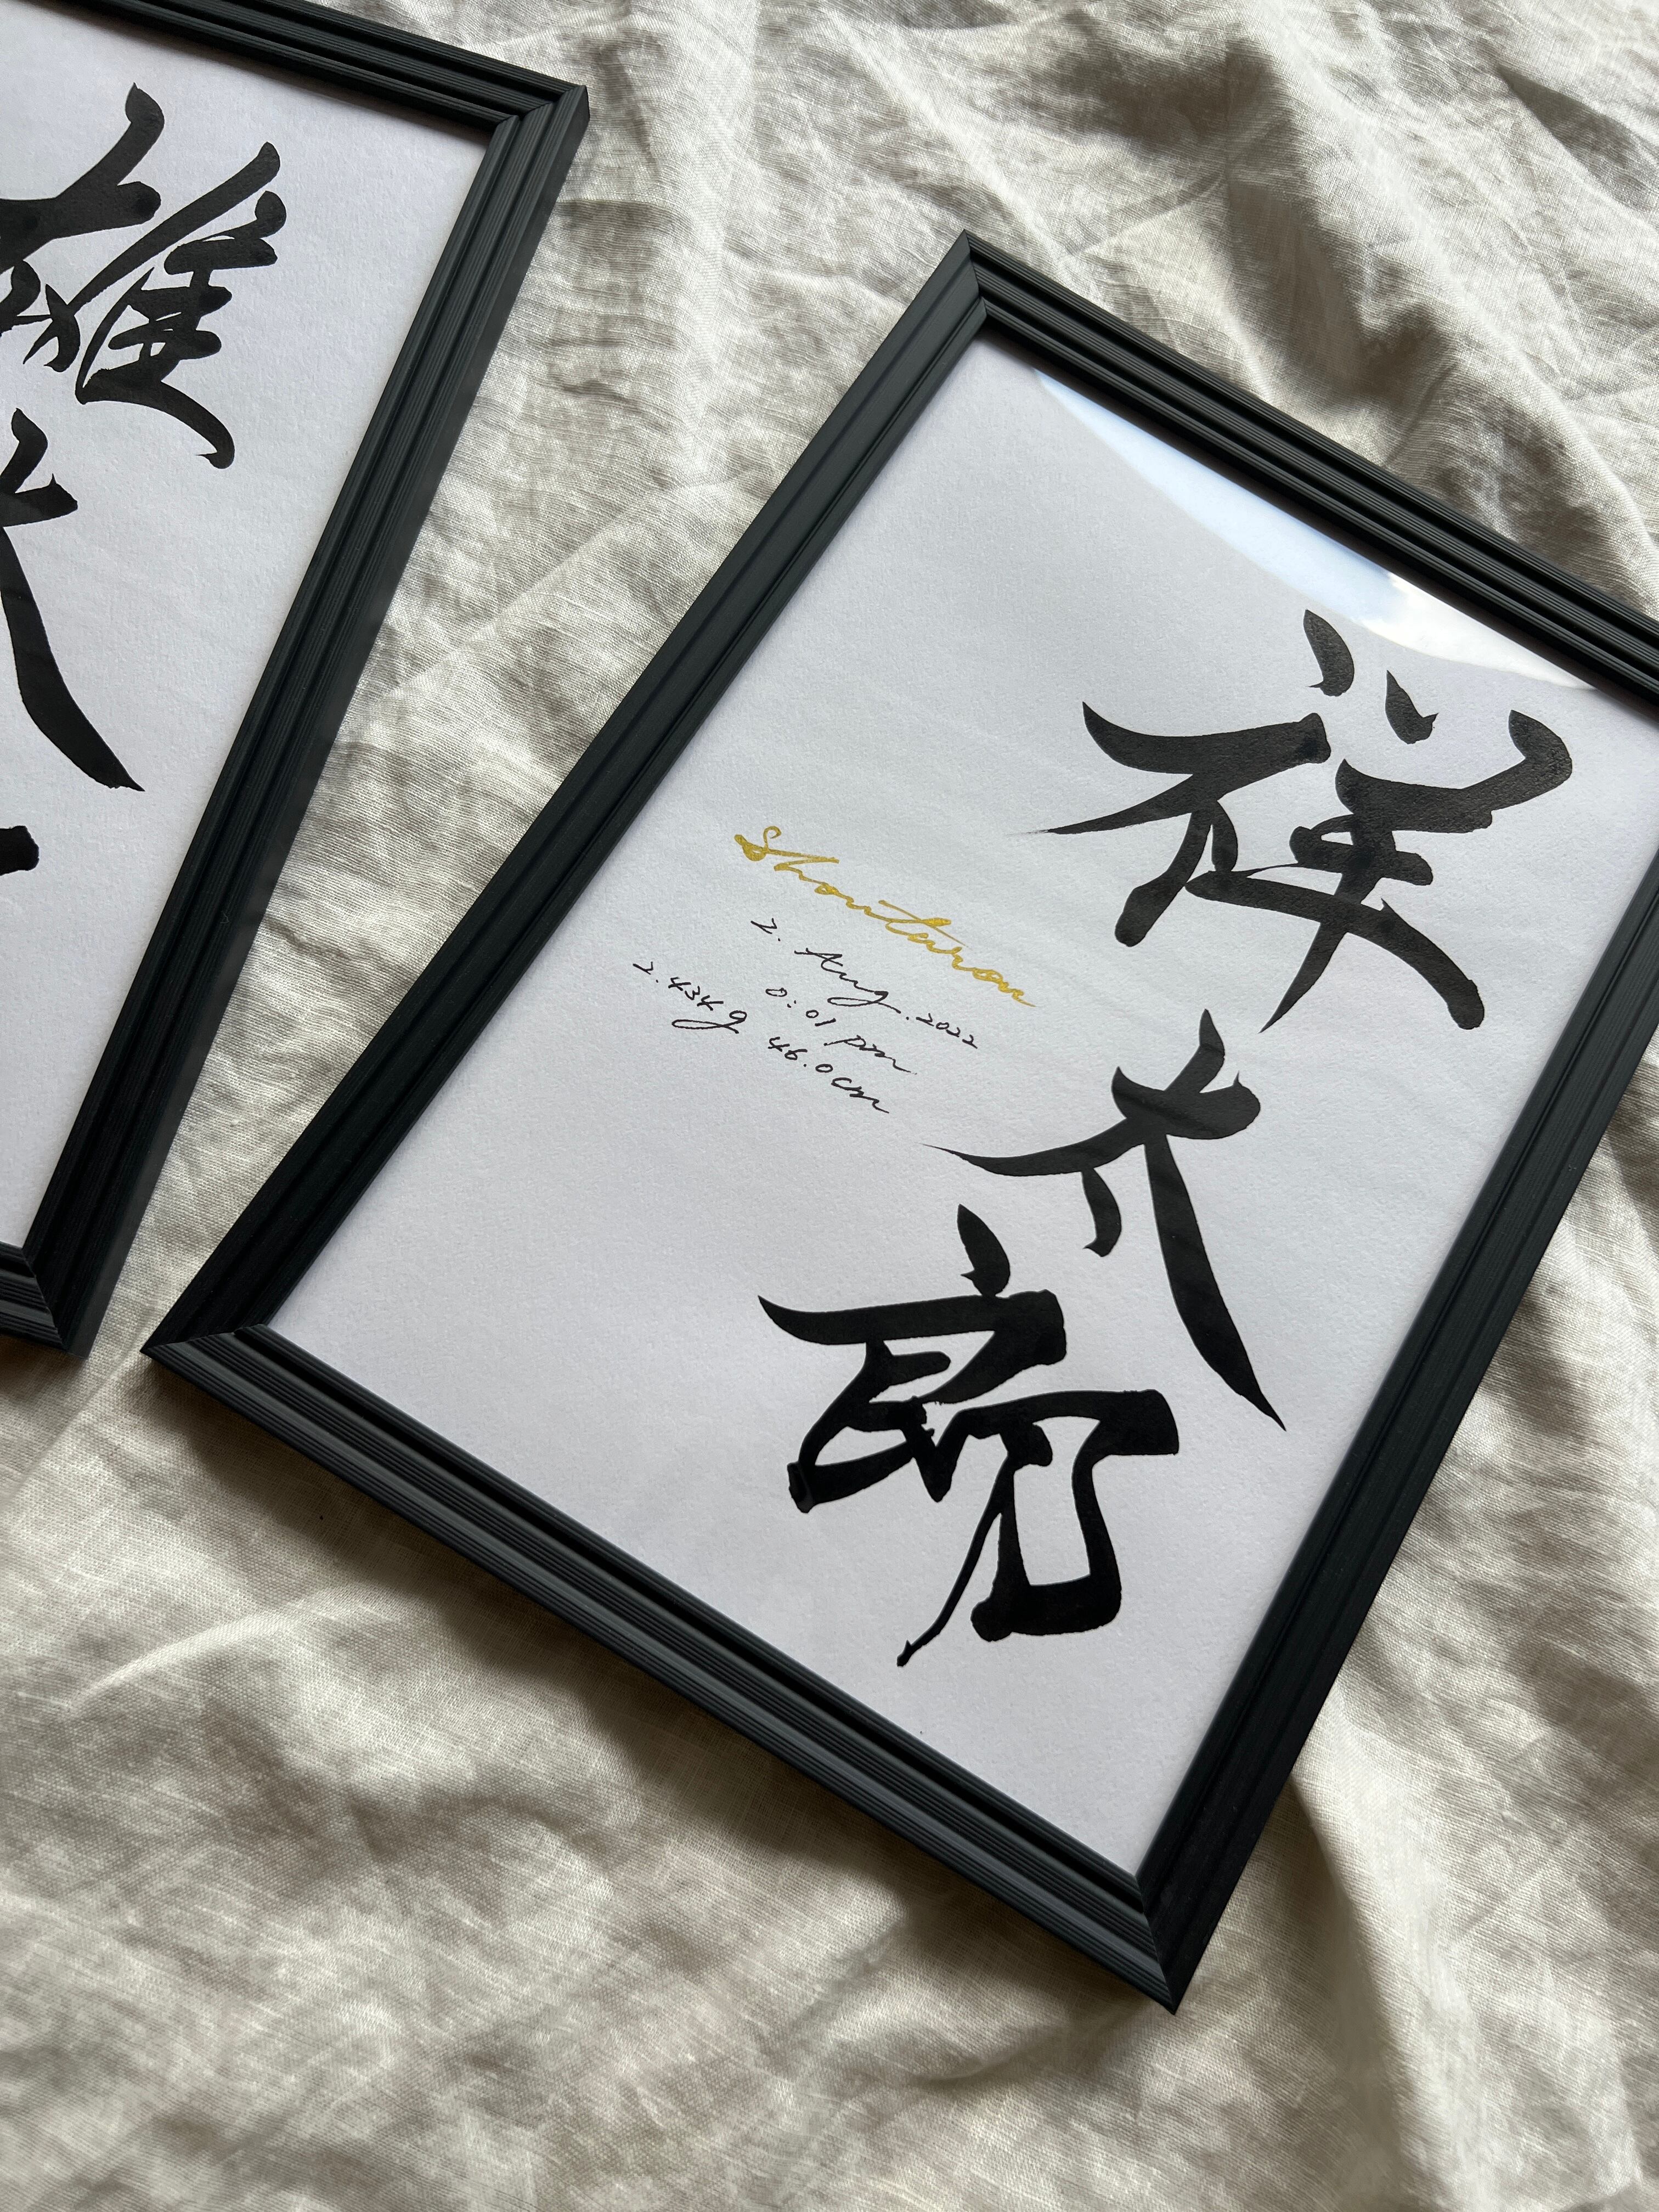 雄
太
祥太郎
Shoutarou
2. Aug. 2022
0:01 pm
2.434g 46.0cm